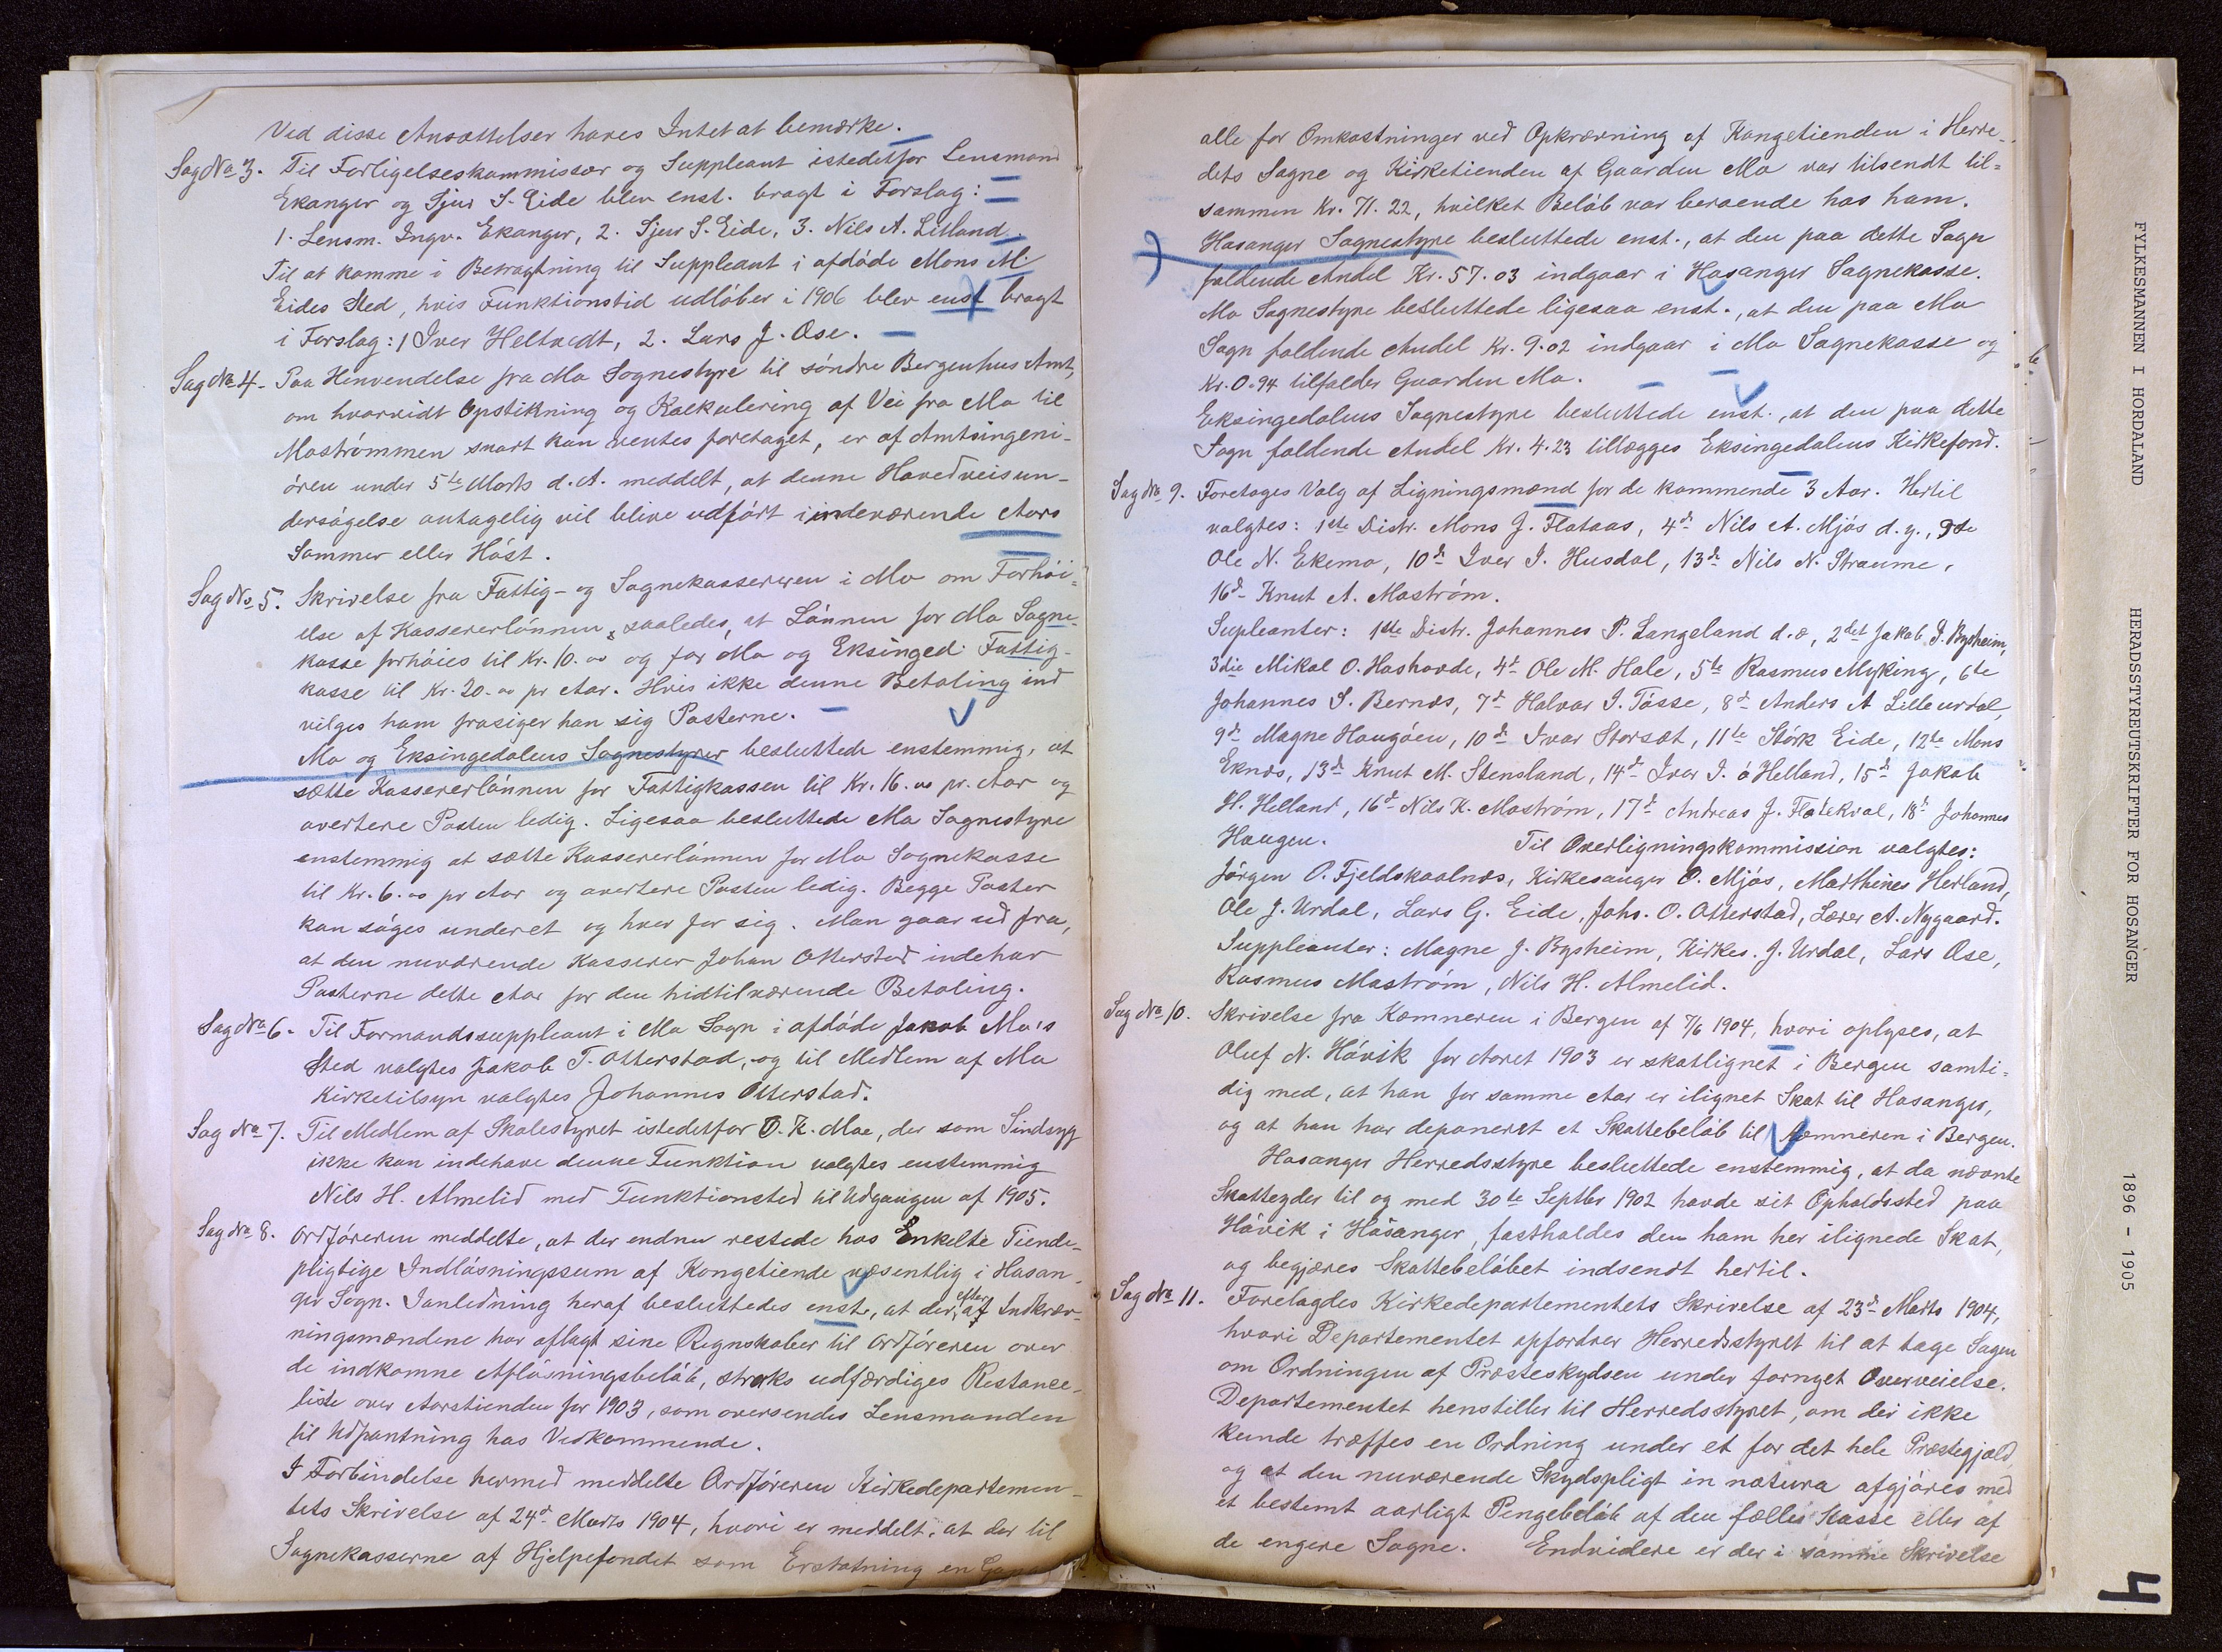 Ved disse Ansættelser haves Intet at bemærke.
Sag No 3. Til Forligelseskommissær og Suppleant istedetfor Lensmand
Ekanger og Sjur S. Eide blev enst. bragt i Forslag:
1. Lensm. Ingv. Ekanger, 2. Sjur S. Eide, 3. Nils A. Litland.
Til at komme i Betragtning til Suppleant i afdøde Mons M.
Eides Sted, hvis Funktionstid udløber i 1906 blev enst bragt
i Forslag: 1 Iver Heltvedt, 2. Lars J. Ose.
Sag No 4. Paa Henvendelse fra Mo Sognestyre til søndre Bergenhus Amt,
om hvorvidt Opstikning og Kalkulering af Vei fra Mo til
Mostrømmen snart kan ventes foretaget, er af Amtsingeni-
øren under 5te Marts d.A. meddelt, at denne Hovedveisun-
dersøgelse antagelig vil blive udført i indeværende Aars
Sommer eller Høst.
Sag No 5. Skrivelse fra Fattig- og Sognekassereren i Mo om Forhøi-
else af Kassererlønnen, saaledes, at Lønnen for Mo Sogne-
kasse forhøies til Kr. 10.00 og for Mo og Eksinged. Fattig-
kasse til Kr. 20.00 pr Aar. Hvis ikke denne Betaling ind
vilges ham frasiger han sig Posterne.
Mo og Eksingedalens Sognestyrer besluttede enstemmig, at
sætte Kassererlønnen for Fattigkassen til Kr. 16.00 pr. Aar og
avertere Posten ledig. Ligesaa besluttede Mo Sognestyre
enstemmig at sætte Kassererlønnen for Mo Sognekasse
til Kr. 6.00 pr Aar og avertere Posten ledig. Begge Poster
kan søges underet og hver for sig. Man gaar ud fra,
at den nuværende Kasserer Johan Otterstad indehar
Posterne dette Aar for den hidtilværende Betaling.
Sag No 6. Til Formandssuppleant i Mo Sogn i afdøde Jakob Mo's
Sted valgtes Jakob T. Otterstad, og til Medlem af Mo
Kirketilsyn valgtes Johannes Otterstad.
Sag No 7. Til Medlem af Skolestyret istedetfor O. K. Moe, der som Sindsyg
ikke kan indehave denne Funktion valgtes enstemmig
Nils H. Almelid med Funktionsted til Udgangen af 1905.
Sag No 8. Ordføreren meddelte, at der endnu restede hos Enkelte Tiende-
pligtige Indløsningssum af Kongetiende væsentlig i Hosan-
ger Sogn. Ianledning heraf besluttedes enst., at der, efter at Indkræv-
ningsmændene har aflagt sine Regnskaber til Ordføreren over
de indkomne Afløsningsbeløb, straks udfærdiges Restance-
liste over Aarstienden for 1903, som oversendes Lensmanden
til Udpantning hos Vedkommende.
I Forbindelse hermed meddelte Ordføreren Kirkedepartemen-
tets Skrivelse af 24d Marts 1904, hvori er meddelt, at der til
Sognekasserne af Hjelpefondet som Erstatning en Gang
alle for Omkostninger ved Opkrævning af Kongetienden i Herre-
dets Sogne og Kirketienden af Gaarden Mo var tilsendt til-
sammen Kr. 71.22, hvilket Beløb var beroende hos ham.
Hosanger Sognestyre besluttede enst., at den paa dette Sogn
faldende Andel Kr. 57.03 indgaar i Hosanger Sognekasse.
Mo Sognestyre besluttede ligesaa enst., at den paa Mo
Sogn faldende Andel Kr. 9.02 indgaar i Mo Sognekasse og
Kr. 0.94 tilfalder Gaarden Mo.
Eksingedalens Sognestyre besluttede enst., at den paa dette
Sogn faldende Andel Kr. 4.23 tillægges Eksingedalens Kirkefond.
Sag No 9. Foretoges Valg af Ligningsmænd for de kommende 3 Aar. Hertil
valgtes: 1ste Distr. Mons J. Flataas, 4d Nils A. Mjøs d.y., 9de
Ole N. Ekemo, 10d Iver I. Husdal, 13d Nils N. Straume,
16d Knut A. Mostrøm.
Supleanter: 1ste Distr. Johannes P. Langeland d.æ, 2det Jakob J. Bysheim,
3die Mikal O. Hoshovde, 4d Ole M. Hole, 5te Rasmus Myking, 6te
Johannes S. Bernæs, 7d Halvor I. Tøsse, 8d Anders A Lilleurdal,
9d Magne Haugøen, 10d Ivar Storsæt, 11te Størk Eide, 12te Mons
Eknæs, 13d Knut M. Stensland, 14d Iver I. ø Helland, 15d Jakob
H. Helland, 16d Nils K. Mostrøm, 17d Andreas J. Flatekval, 18d Johannes
Haugen. Til Overligningskommission valgtes:
Jørgen O. Fjeldskaalnæs, Kirkesanger O. Mjøs, Marthines Herland,
Ole J. Urdal, Lars G. Eide, Johs. O. Otterstad, Lærer A. Nygaard.
Suppleanter: Magne J. Bysheim, Kirkes. J. Urdal, Lars Ose,
Rasmus Mostrøm, Nils H. Almelid.
Sag No 10. Skrivelse fra Kæmneren i Bergen af 7/6 1904, hvori oplyses, at
Oluf N. Høvik for Aaret 1903 er skatlignet i Bergen samti-
dig med, at han for samme Aar er ilignet Skat til Hosanger,
og at han har deponeret et Skattebeløb til Kemneren i Bergen.
Hosanger Herredsstyre besluttede enstemmig, at da nævnte
Skatteyder til og med 30te Septbr 1902 havde sit Opholdssted paa
Høvik i Hosanger, fastholdes den ham her ilignede Skat,
og begjæres Skattebeløbet indsendt hertil.
Sag No 11. Forelagdes Kirkedepartementets Skrivelse af 23d Marts 1904,
hvori Departementet opfordrer Herredsstyret til at tage Sagen
om Ordningen af Præsteskydsen under fornyet Overveielse.
Departementet henstiller til Herredsstyret, om der ikke
kunde træffes en Ordning under et for det hele Præstegjæld,
og at den nuværende Skydspligt in natura afgjøres med
et bestemt aarligt Pengebeløb af den fælles Kasse eller af
de engere Sogne. Endvidere er der i samme Skrivelse
FYLKESMANNEN I HORDALAND HERADSSTYREUTSKRIFTER FOR HOSANGER 1896 - 1905
4